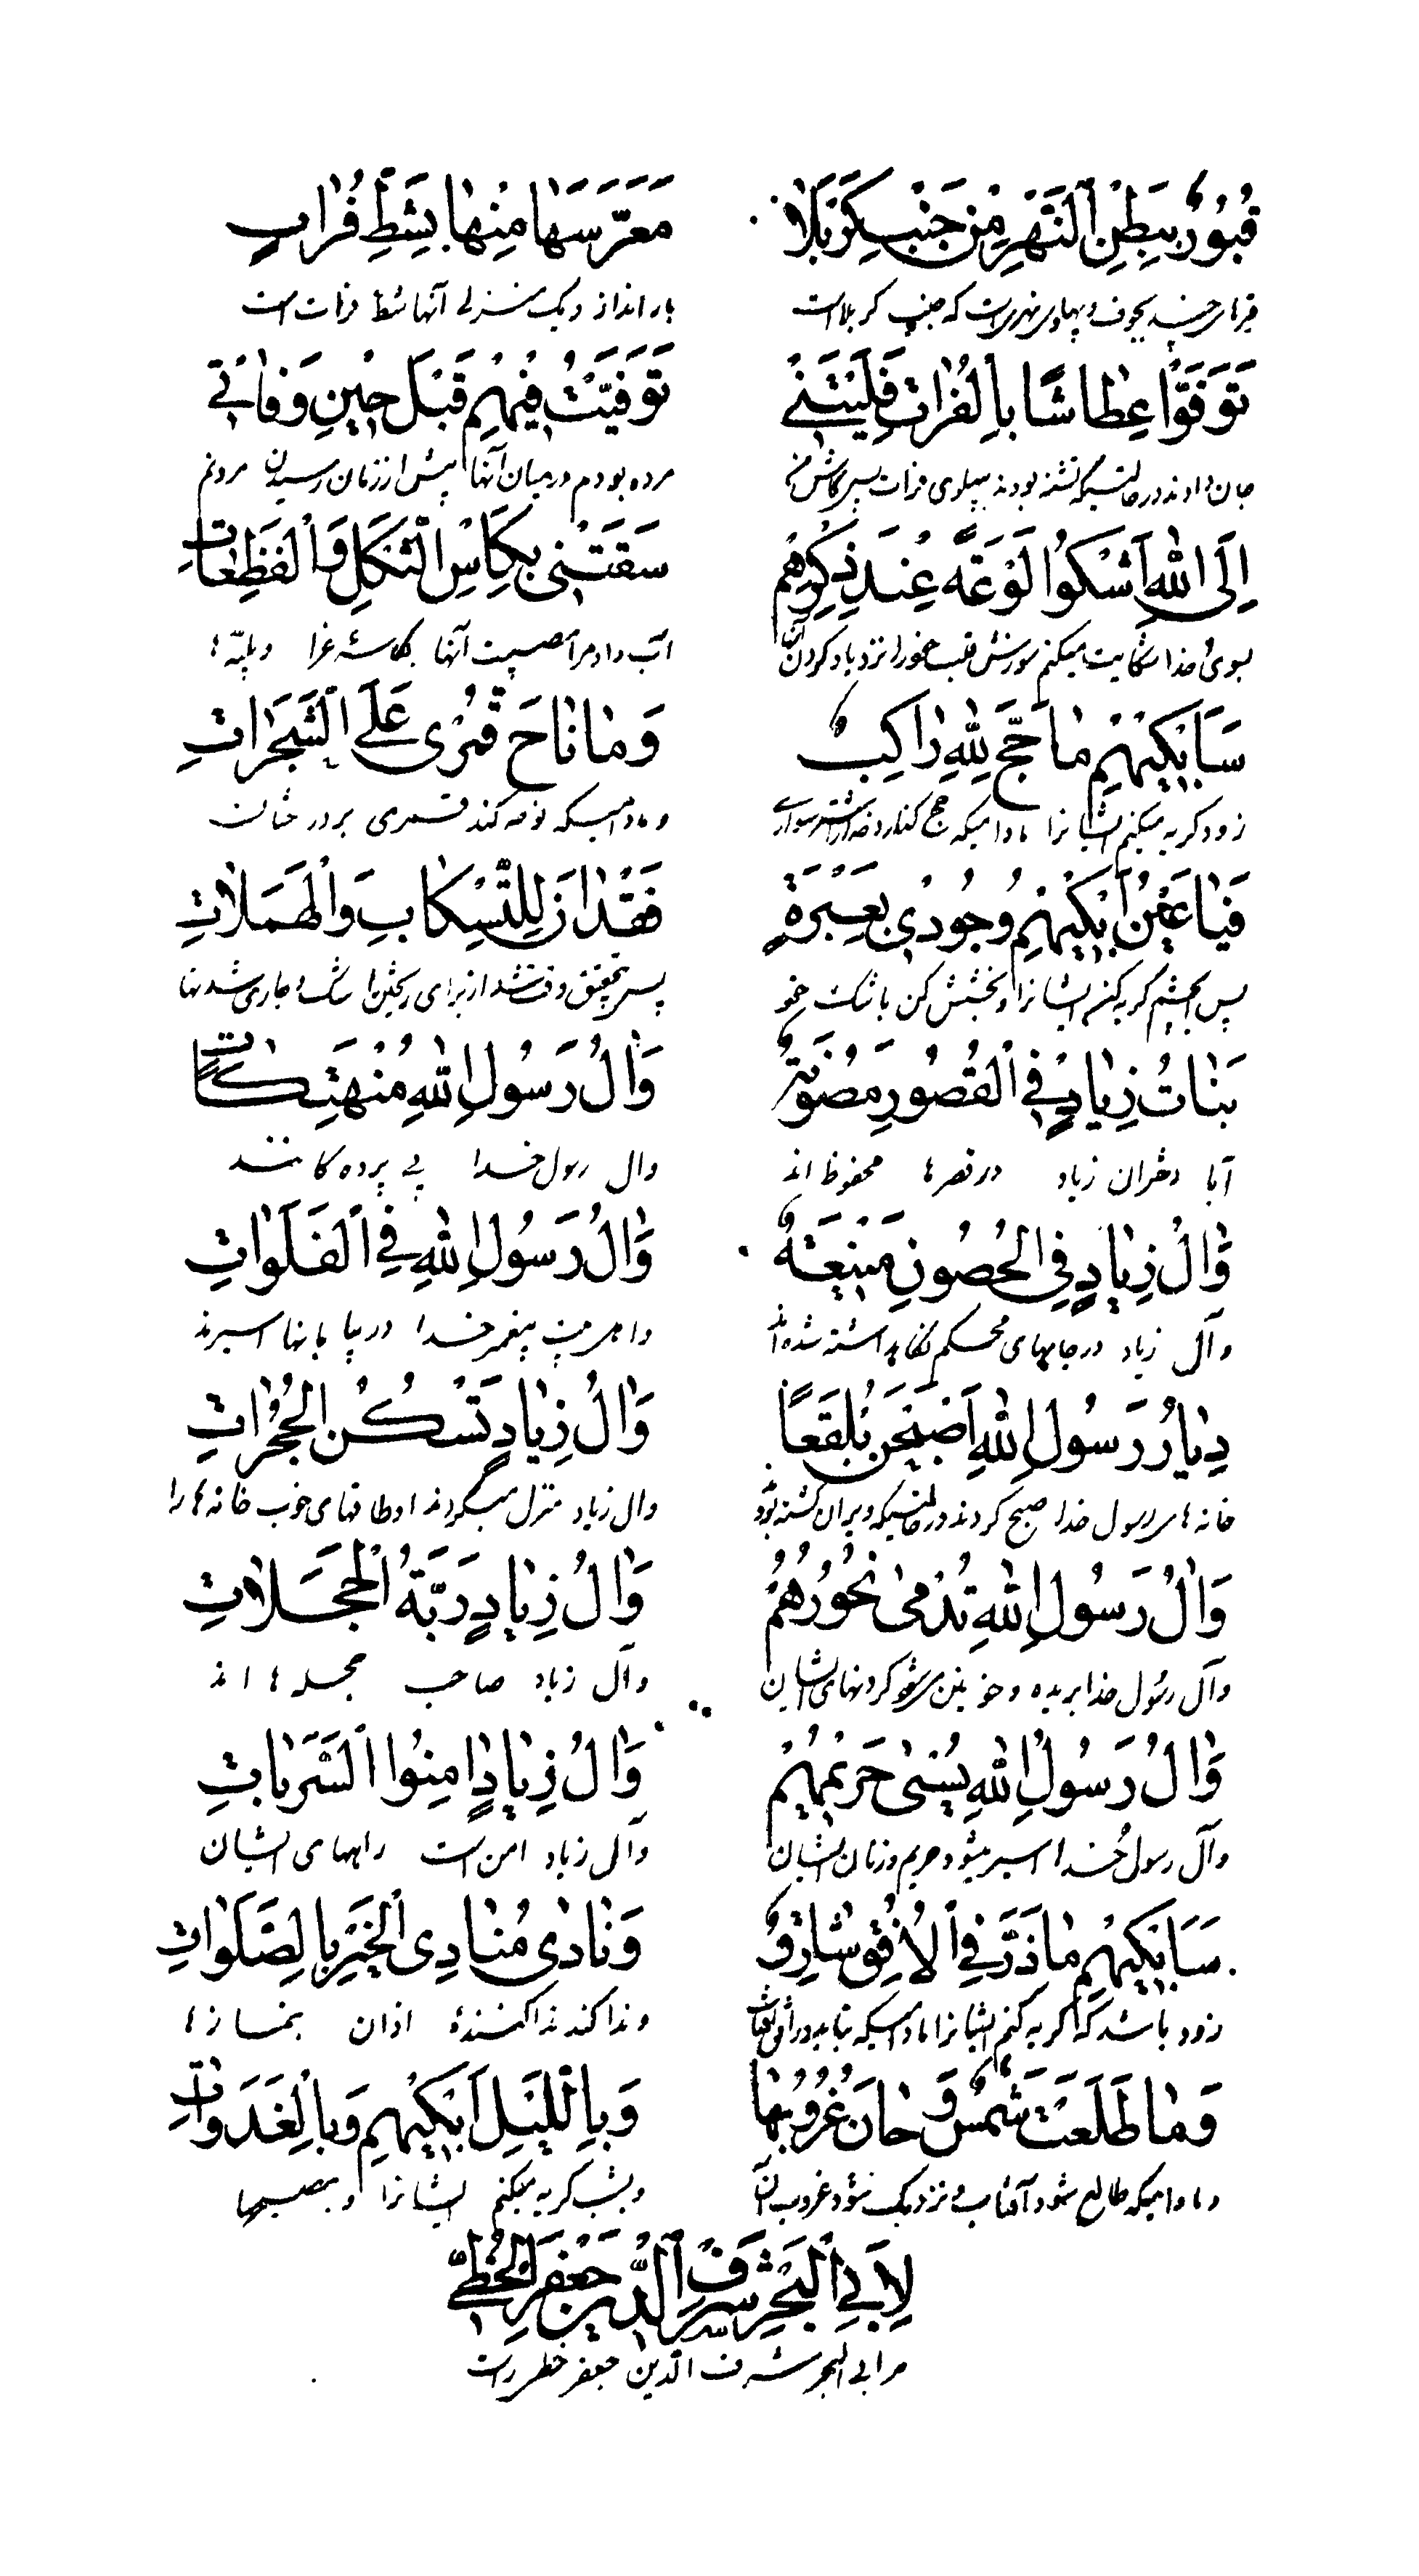 قُبُورٌ بِبَطْنِ ٱلنَّهْرِ مِنْ جَنْبِ كَرْبَلَا مُعَرَّسُهَا مِنْهَا بِشَطِّ فُرَاتٍ
قبرهای چند بجوف و پهلوی نهریست که جنب کربلا است بار انداز و یک منزلی آنها شط فرات است
تَوَفَّوْا عِطَاشًا بِالْفُرَاتِ فَلَيْتَنِي تُوُفِّيتُ فِيهِمْ قَبْلَ حِينِ وَفَاتِي
جان دادند در حالتیکه تشنه بودند بپهلوی فرات پس کاش من مرده بودم در میان آنها پیش از زمان رسیدن مردنم
إِلَى اللهِ أَشْكُوا لَوْعَةً عِنْدَ ذِكْرِهِمْ سَقَتْنِي بِكَأْسِ الثُّكْلِ وَالْفَظِعَاتِ
بسوی خدا شکایت میکنم سوزش قلب خود را نزد یاد کردن آنها آب داد مرا مصیبت آنها بکاسهٔ عزا و بلیه‌ها
سَأَبْكِيهِمْ مَا حَجَّ لِلهِ رَاكِبٌ وَمَا نَاحَ قُمْرِيٌّ عَلَى الشَّجَرَاتِ
زود گریه میکنم ایشانرا مادامیکه حج گذارد خدا را شتر سواری و مادامیکه نوحه کند قمری بر درختان
فَيَا عَيْنُ أَبْكِيهِمْ وَجُودِي بِعَبْرَةٍ فَقَدْ آنَ لِلتَّسْكَابِ وَالْهَمَلَاتِ
پس ایچشم گریه کن ایشانرا و بخشش کن باشک خود پس بتحقیق وقت شد از برای ریختن اشک و جاری شدنها
بَنَاتُ زِيَادٍ فِي الْقُصُورِ مَصُونَةٌ وَآلُ رَسُولِ اللهِ مُنْهَتِكَاتٌ
آیا دختران زیاد در قصرها محفوظ اند وال رسول خدا بی پرده کانند
وَآلُ زِيَادٍ فِي الْحُصُونِ مَنِيعَةٌ وَآلُ رَسُولِ اللهِ فِي الْفَلَوَاتِ
وآل زیاد در جایهای محکم نگاه داشته شده‌اند واهل بیت پیغمبر خدا در بیابانها اسیرند
دِيَارُ رَسُولِ اللهِ أَصْبَحْنَ بَلْقَعًا وَآلُ زِيَادٍ تَسْكُنُ الْحُجُرَاتِ
خانه‌های رسول خدا صبح کردند در حالتیکه ویران گشته بود وال زیاد منزل میگردند اوطاقهای خوب خانه‌ها را
وَآلُ رَسُولِ اللهِ تُدْمَى نُحُورُهُمْ وَآلُ زِيَادٍ رَبَّةُ الْحَجَلَاتِ
وآل رسول خدا بریده و خونین میشود گردنهای ایشان وآل زیاد صاحب حجله‌ها اند
وَآلُ رَسُولِ اللهِ يُسْبَى حَرِيمُهُمْ وَآلُ زِيَادٍ آمِنُوا السَّرَبَاتِ
وآل رسول خدا اسیر میشود حریم و زنان ایشان وآل زیاد امن است راههای ایشان
سَأَبْكِيهِمْ مَا ذَرَّ فِي الْأُفْقِ شَارِقٌ وَنَادَى مُنَادِي الْخَيْرِ بِالصَّلَوَاتِ
زود باشد که گریه کنم ایشانرا مادامیکه بتابد در افق آفتاب و ندا کند ندا کنندهٔ اذان بنمازها
وَمَا طَلَعَتْ شَمْسٌ وَحَانَ غُرُوبُهَا وَبِاللَّيْلِ أَبْكِيهِمْ وَبِالْغَدَوَاتِ
ومادامیکه طالع شود آفتاب و نزدیک شود غروب آن وبشب گریه میکنم ایشانرا و بصبحها
لِأَبِي الْبَحْرِ شَرَفِ الدِّينِ جَعْفَرِ الْخَطِّيِّ
مر ابی البحر شرف الدین جعفر خطی راست